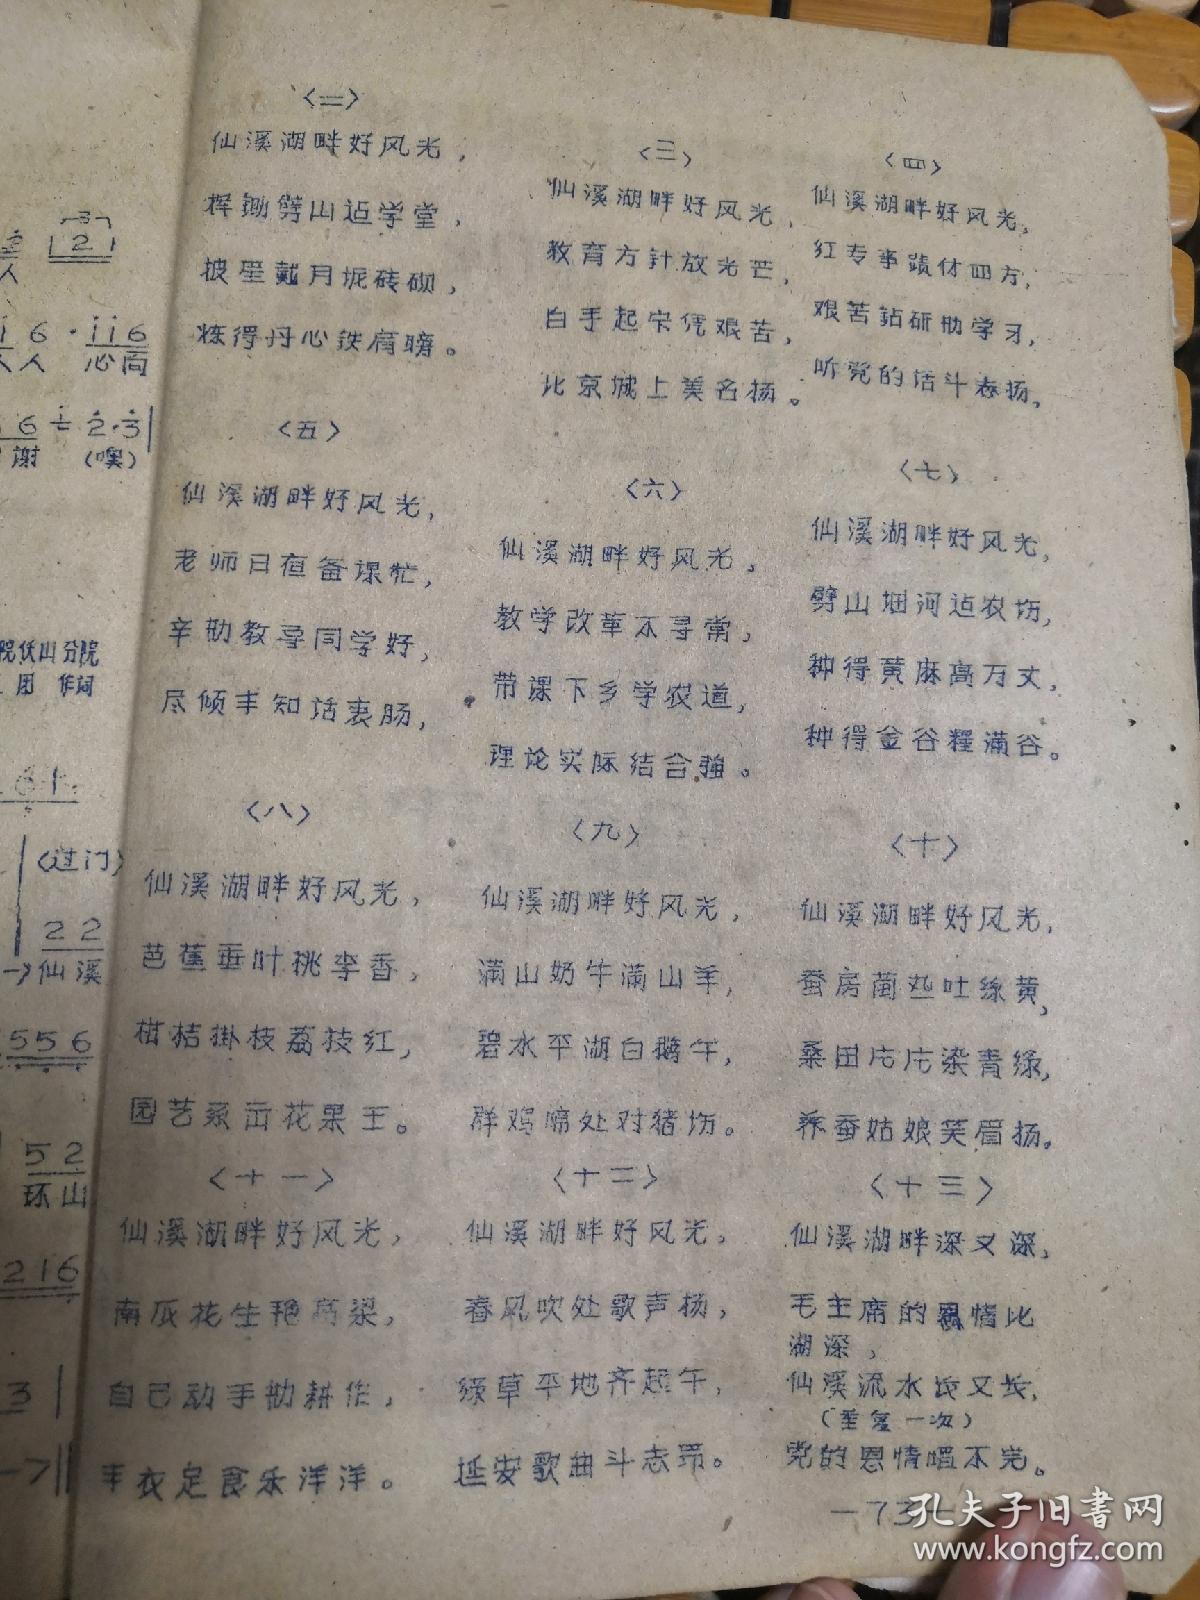 2
人
1 6 · 1 1 6
人人 心向
6 2·3
谢 (噢)
院伏山分院
团 作词
6 1
(过门)
2 2
仙溪
5 5 6
5 2
环山
2 1 6
3
7
〈二〉
仙溪湖畔好风光，
挥锄劈山造学堂，
披星戴月坭砖砌，
炼得丹心铁肩膀。
〈三〉
仙溪湖畔好风光，
教育方针放光芒，
白手起家凭艰苦，
北京城上美名扬。
〈四〉
仙溪湖畔好风光，
红专事蹟传四方，
艰苦钻研勤学习，
听党的话斗志扬，
〈五〉
仙溪湖畔好风光，
老师日夜备课忙，
辛勤教导同学好，
尽倾丰知话衷肠，
〈六〉
仙溪湖畔好风光。
教学改革不寻常，
带课下乡学农道，
理论实际结合強。
〈七〉
仙溪湖畔好风光，
劈山堌河造农场，
种得黄麻高万丈，
种得金谷粮满谷。
〈八〉
仙溪湖畔好风光，
芭蕉垂叶桃李香，
柑桔掛枝荔枝红，
园艺系亩花果王。
〈九〉
仙溪湖畔好风光，
满山奶牛满山羊，
碧水平湖白鹅午，
群鸡啼处对猪场。
〈十〉
仙溪湖畔好风光，
蚕房茧丝吐绿黄，
桑田片片染青绿，
养蚕姑娘笑眉扬。
〈十一〉
仙溪湖畔好风光，
南瓜花生艳高梁，
自己动手勤耕作，
丰衣足食乐洋洋。
〈十二〉
仙溪湖畔好风光。
春风吹处歌声扬，
绿草平地齐起午，
延安歌曲斗志昂。
〈十三〉
仙溪湖畔深又深，
毛主席的恩情比
湖深，
仙溪流水长又长，
(重复一次)
党的恩情唱不完。
—73—
孔夫子旧书网
www.kongfz.com